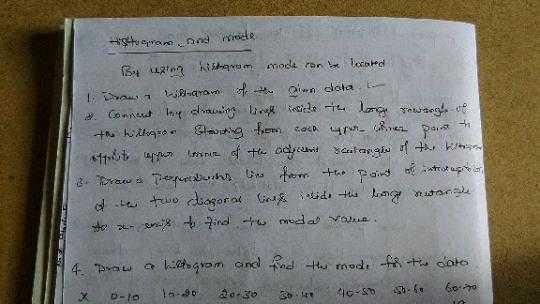 Histogram and mode
By using histogram mode can be located
1. Draw a histogram of the given data.
2. Connect by drawing lines inside the large rectangle of
the histogram Starting from each upper corner point to
opposite upper corner of the adjacent rectangles of the histogram
3. Draw a perpendicular line from the point of intersection
of the two diagonal lines inside the large rectangle
to x-axis to find the modal value.
4. Draw a histogram and find the mode for the data
X 0-10 10-20 20-30 30-40 40-50 50-60 60-70